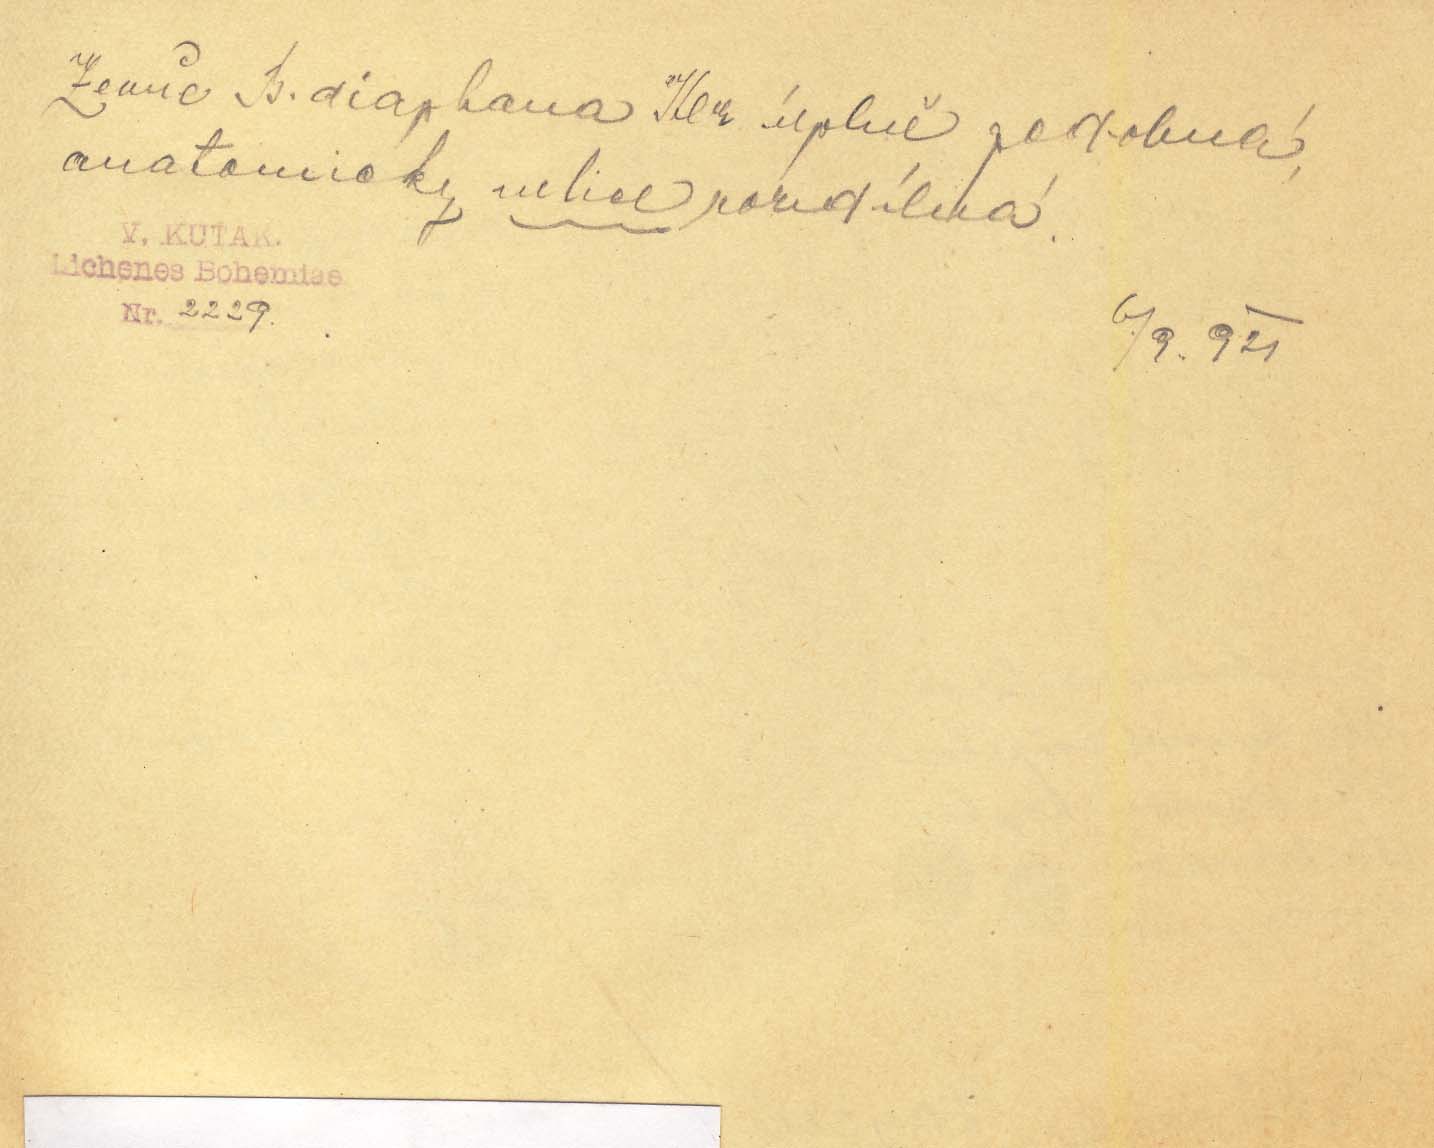 Zevně B. diaphana Kbr úplně podobná,
anatomicky velice rozdílná.
V. KUŤAK.
Lichenes Bohemiae
Nr. 2229.
6/9. 921